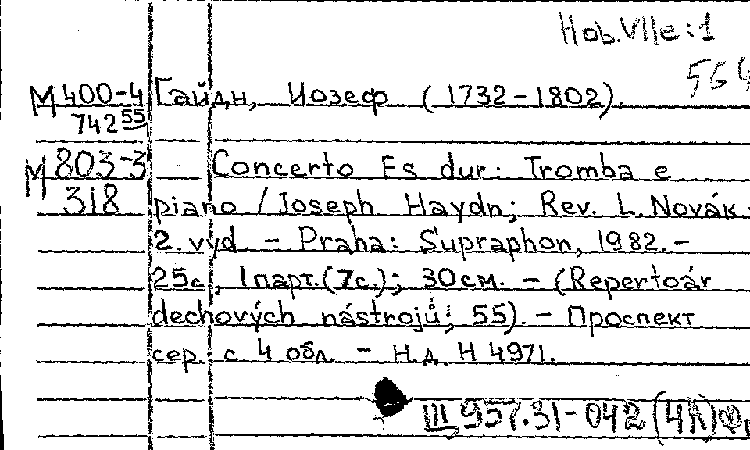 Hob.VIIe:1
564
М 400-4 Гайдн, Иозеф (1732-1802).
742 55
М 803-3 Concerto Es dur: Tromba e
318 piano / Joseph Haydn; Rev. L. Novák.
2. vyd - Praha: Supraphon, 1982.-
25с., 1 парт.(7с.); 30см. - (Repertoár
dechových nástrojů; 55). - Проспект
сер. с 4 обл. - Н.д. H 4971.
III 957.31-042(4Л)